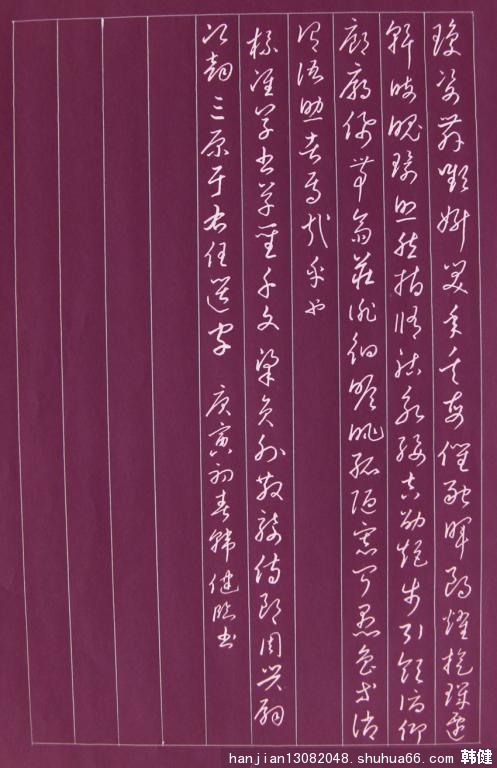 姿颦妍笑年矢每催羲暉朗耀旋璣懸
斡晦魄環照指修祜永綏吉劭矩步引領俯仰
廊廟束帶矜莊徘徊瞻眺孤陋寡聞愚蒙等誚
謂語助者焉哉乎也
標準草書草聖千文 梁員外散騎侍郎周興嗣
次韻三原于右任選字 庚寅初春韓健臨書
hanjian13082048.shuhua66.com 韩健